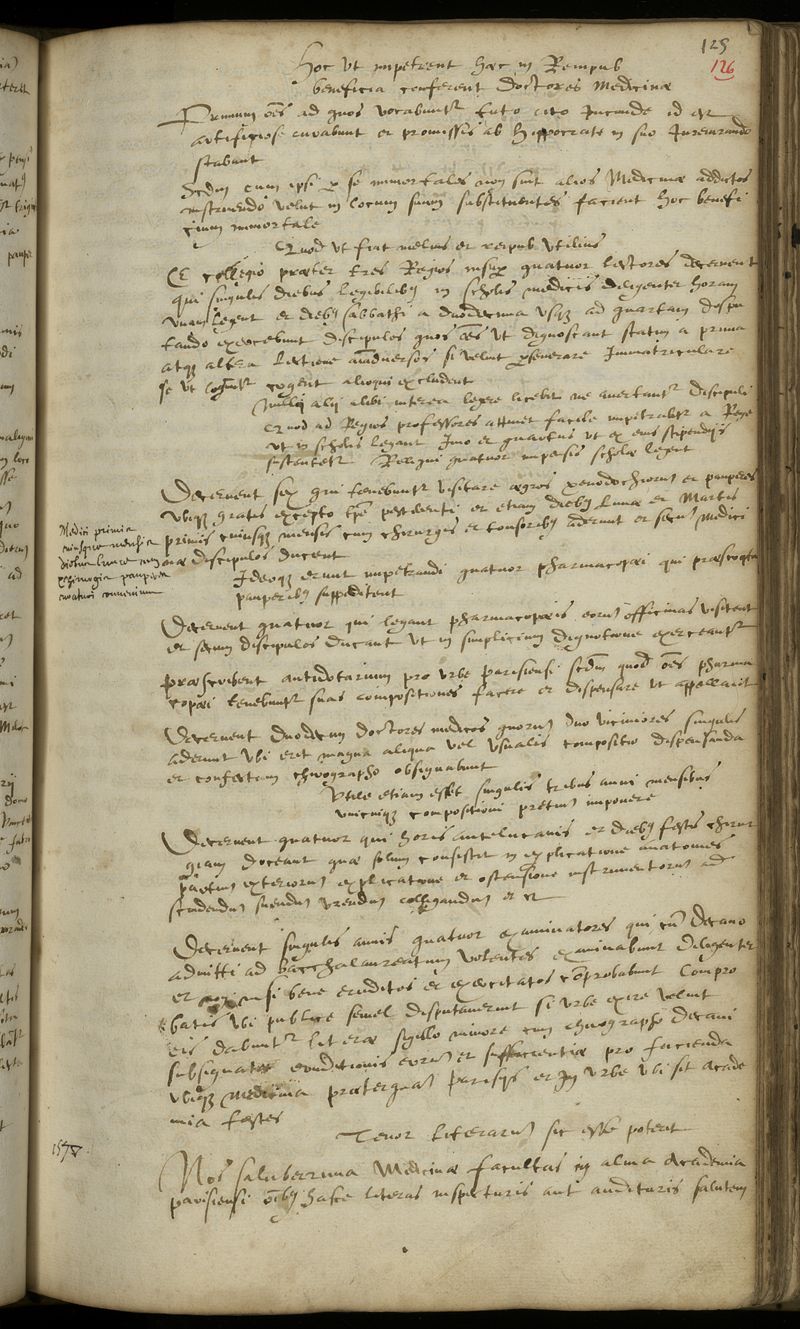 125
126
Hoc ut impetrent hæc in Rempub
beneficia conferent doctores Medicinæ
Primum oēs ad quos vocabuntr tuto cito Jucunde id est
artificiose curabunt et promissis ab Hippocrate in suo Jureiurando
stabunt
Scdm cum ipsi per se immortales non sint alios Medicinæ addictos
instruendo velut in locum suum substituentes facient hoc benefi
cium immortale
Quod ut fiat melius et reipub utilius
E collegio præter tres Regios quatuor lectores decernent
qui singulis diebus legibilibq in scholis medicis diligenter horam
unam legent et diebq sabbathi a duodecima usqz ad quartam dispu
tando exercebunt discipulos quos oēs ut dignoscant statim a prima
atqz altera lectione si velint perseverare Immatriculare
se ut cogent alioqui excludent
Nulliqz alij alibi interea legere licebit ne avertantr discipuli
Quod ad Regios professores attinet facile impetrabitr a Rege
ut in scholis legant Imo et quartus ut ex eius stipendijs
sustentetr Reliqui quatuor impensis scholæ legent
Decernent sex qui tenebuntr visitare ægros xenodochiorum et pauperes
ubiqz gratis excepto tpe pestilenti et etiam diebq Lunæ et Martis
primis cuiusqz mensis cum chirurgis et tonsoribq aderunt et secum Medici
næ discipulos ducent
Medici primis
cuiusque mensis
diebus lunæ
pauperum
curaturi convenient
Ideoqz erunt impetrandi quatuor pharmacopœi qui præscripta
pauperibq suppeditent
Decernent quatuor qui legant pharmacopœis eorum officinas visitent
et secum discipulos ducant ut in simplicium dignotione exerceantr
Præscribent antidotarium pro urbe parisiensi scdm quod oēs pharma
copœi tenebuntr suas compositiones facere et dispensare ut appellant
Decernent duodecim doctores medicos quorum duo viciniores singulis
aderunt ubi erit magna aliqua vel usualis compositio dispensanda
et confectam chirographo obsignabunt
Utile etiam esset singulis tribus anni mensibus
unicuiqz compositioni pretium imponere
Decernent quatuor qui horis antelucanis et diebq festis chirur
giam doceant quæ solum consistit in explicatione anatomes
partium exteriorum explicatione et ostensione instrumentorum ad
scindendum suendum urendum colligandum et ct
Decernent singulis annis quatuor examinatores qui cum decano
admitti ad Bacchalaureatum volentes examinabunt diligenter
et non nisi bene eruditos et exercitatos comprobabunt Compro
batis ubi publice semel disputaverint si urbe exire velint
eis dabuntr literæ sigillo minore cum chirographo decani
subsignatæ eruditionis eorum et sufficientiæ pro facienda
ubiqz Medicina præterquam Parisijs et in urbe ubi sit Acade
mia testes
Tenor literarum sic esse poterit
Nos saluberrima Medicinæ facultas in alma Academia
parisiensi oībq hasce literas inspecturis aut audituris salutem